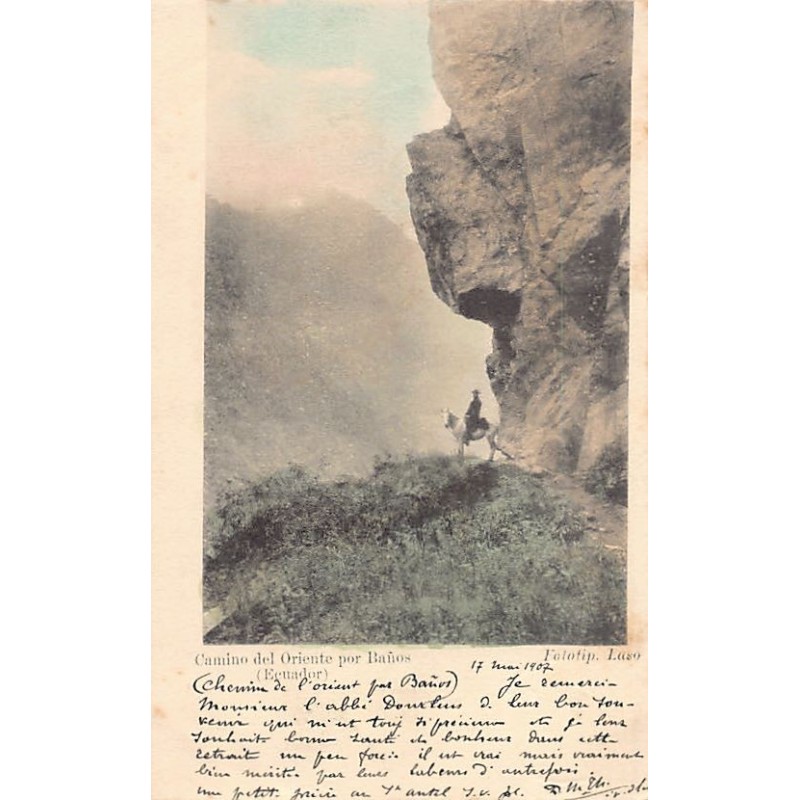 Camino del Oriente por Baños
(Ecuador)
Fototip. Laso
17 mai 1907
(Chemin de l'orient par Baños) Je remercie
Monsieur l'abbé de leur bon sou-
venir qui m'est touj. si précieux et je leur
souhaite bonne santé et bonheur dans cette
retraite un peu forcée il est vrai mais vraiment
bien méritée par leurs labeurs d'autrefois.
une petite prière au St autel s.v.pl.